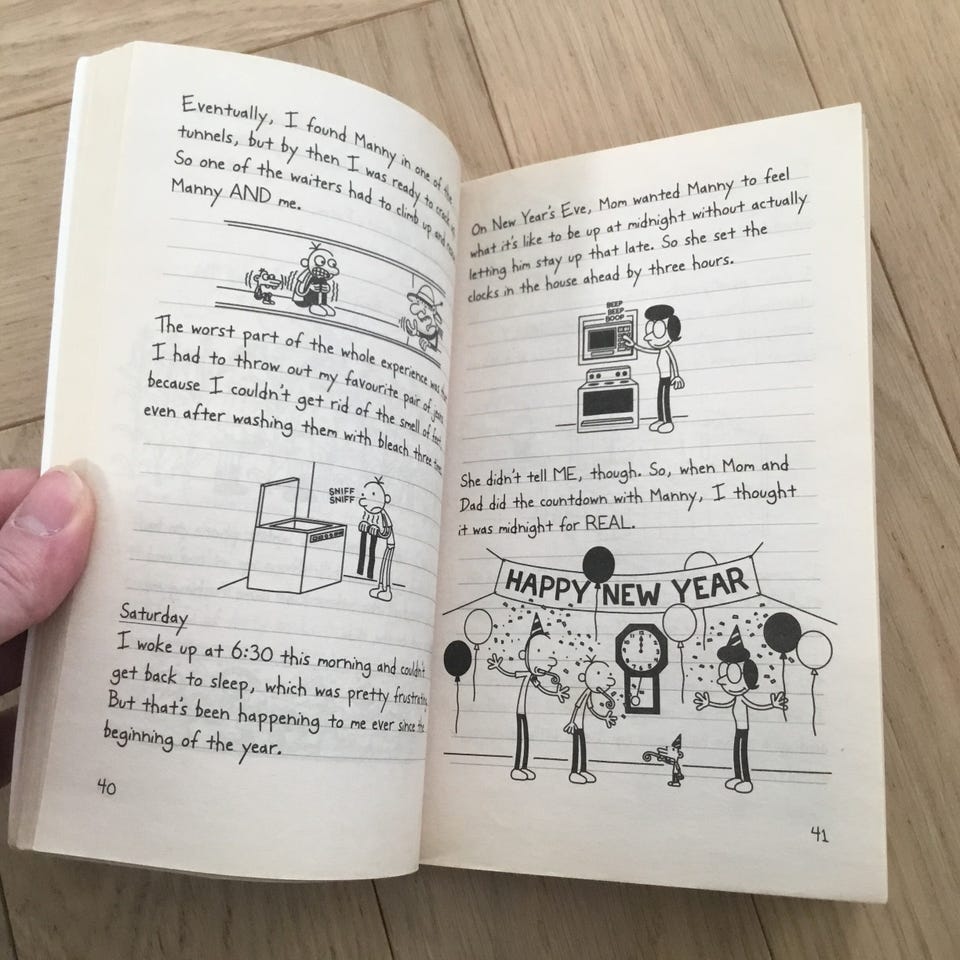 Eventually, I found Manny in one of the
tunnels, but by then I was ready to crack
So one of the waiters had to climb up and
Manny AND me.
The worst part of the whole experience was
I had to throw out my favourite pair of
because I couldn't get rid of the smell of
even after washing them with bleach three
SNIFF
SNIFF
Saturday
I woke up at 6:30 this morning and couldn't
get back to sleep, which was pretty frustrating.
But that's been happening to me ever since the
beginning of the year.
40
On New Year's Eve, Mom wanted Manny to feel
what it's like to be up at midnight without actually
letting him stay up that late. So she set the
clocks in the house ahead by three hours.
BEEP
BEEP
BOOP
She didn't tell ME, though. So, when Mom and
Dad did the countdown with Manny, I thought
it was midnight for REAL.
HAPPY NEW YEAR
41